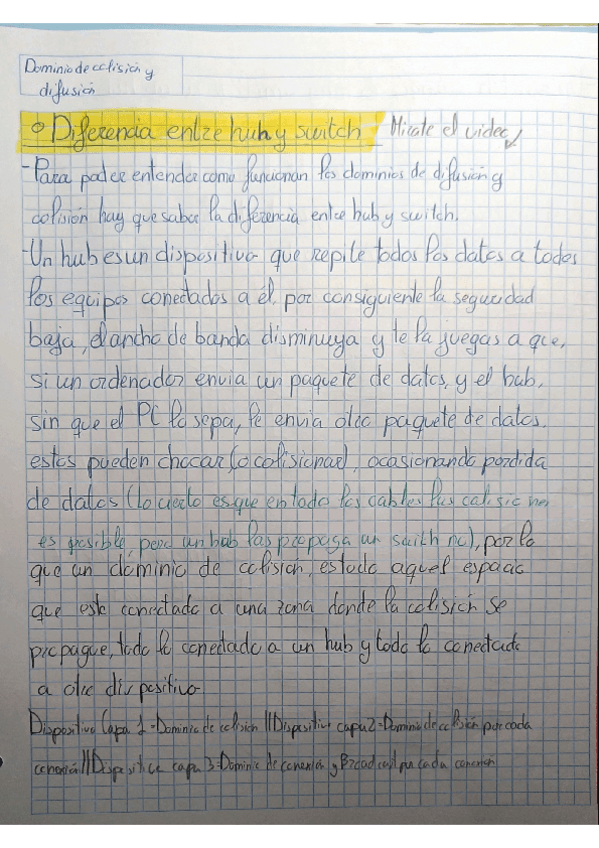 Dominio de colisión y
difusión
Diferencia entre hub y switch Mirate el video
-Para poder entender como funcionan los dominios de difusión y
colisión hay que saber la diferencia entre hub y switch.
-Un hub es un dispositivo que repite todos los datos a todos
los equipos conectados a él, por consiguiente la seguridad
baja, el ancho de banda disminuya y te la juegas a que,
si un ordenador envia un paquete de datos, y el hub,
sin que el PC lo sepa, le envia otro paquete de datos,
estos pueden chocar (o colisionar), ocasionando perdida
de datos (Lo cierto es que en todos los cables las colisiones
es posible, pero un hub las propaga un swith no), por lo
que un dominio de colisión, es todo aquel espacio
que este conectado a una zona donde la colisión se
propague, todo lo conectado a un hub y todo lo conectado
a otro dispositivo.
Dispositivo Capa 1-Dominio de colisión || Dispositivo capa 2-Dominio de colisión por cada
conexión || Dispositivo capa 3-Dominio de conexión y Broadcast por cada conexión